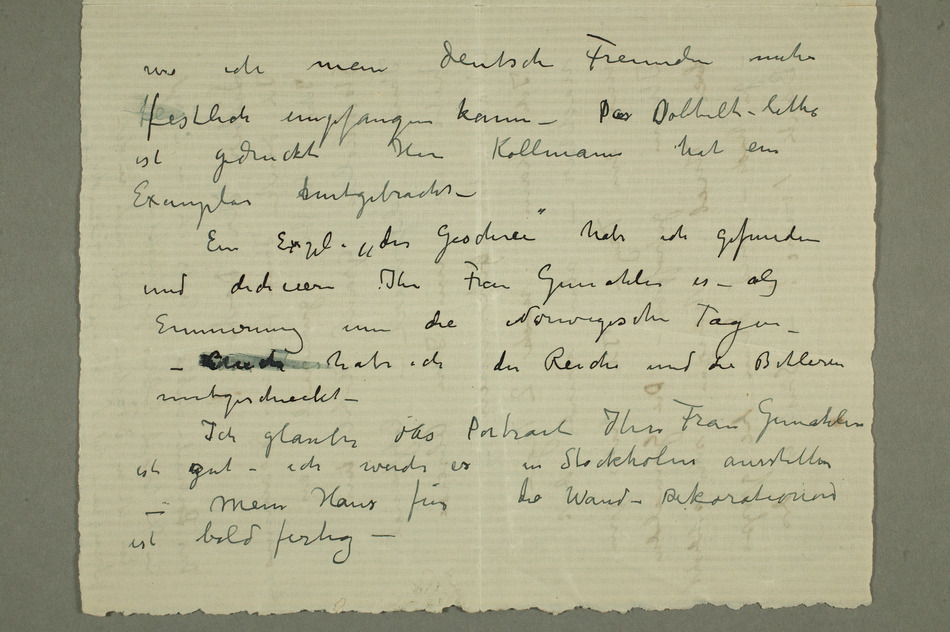 wo ich mein deutsche Freunden mehr
festlich empfangen kann – Das Dobbelt-litho
ist gedruckt Herr Kollmann hat ein
Exemplar mitgebracht –
Ein Expl. „das Geschrei" habe ich gefunden
und dediciere Ihr Frau Gemahlin es – als
Erinnerung um die Norwegische Tagen –
– habe ich der Reiche und die Bettlerin
mitgeschickt –
Ich glaube das Portrait Ihres Frau Gemahlin
ist gut – ich werde es in Stockholm ausstellen
– Mein Haus für die Wand-Dekorationen
ist bald fertig –